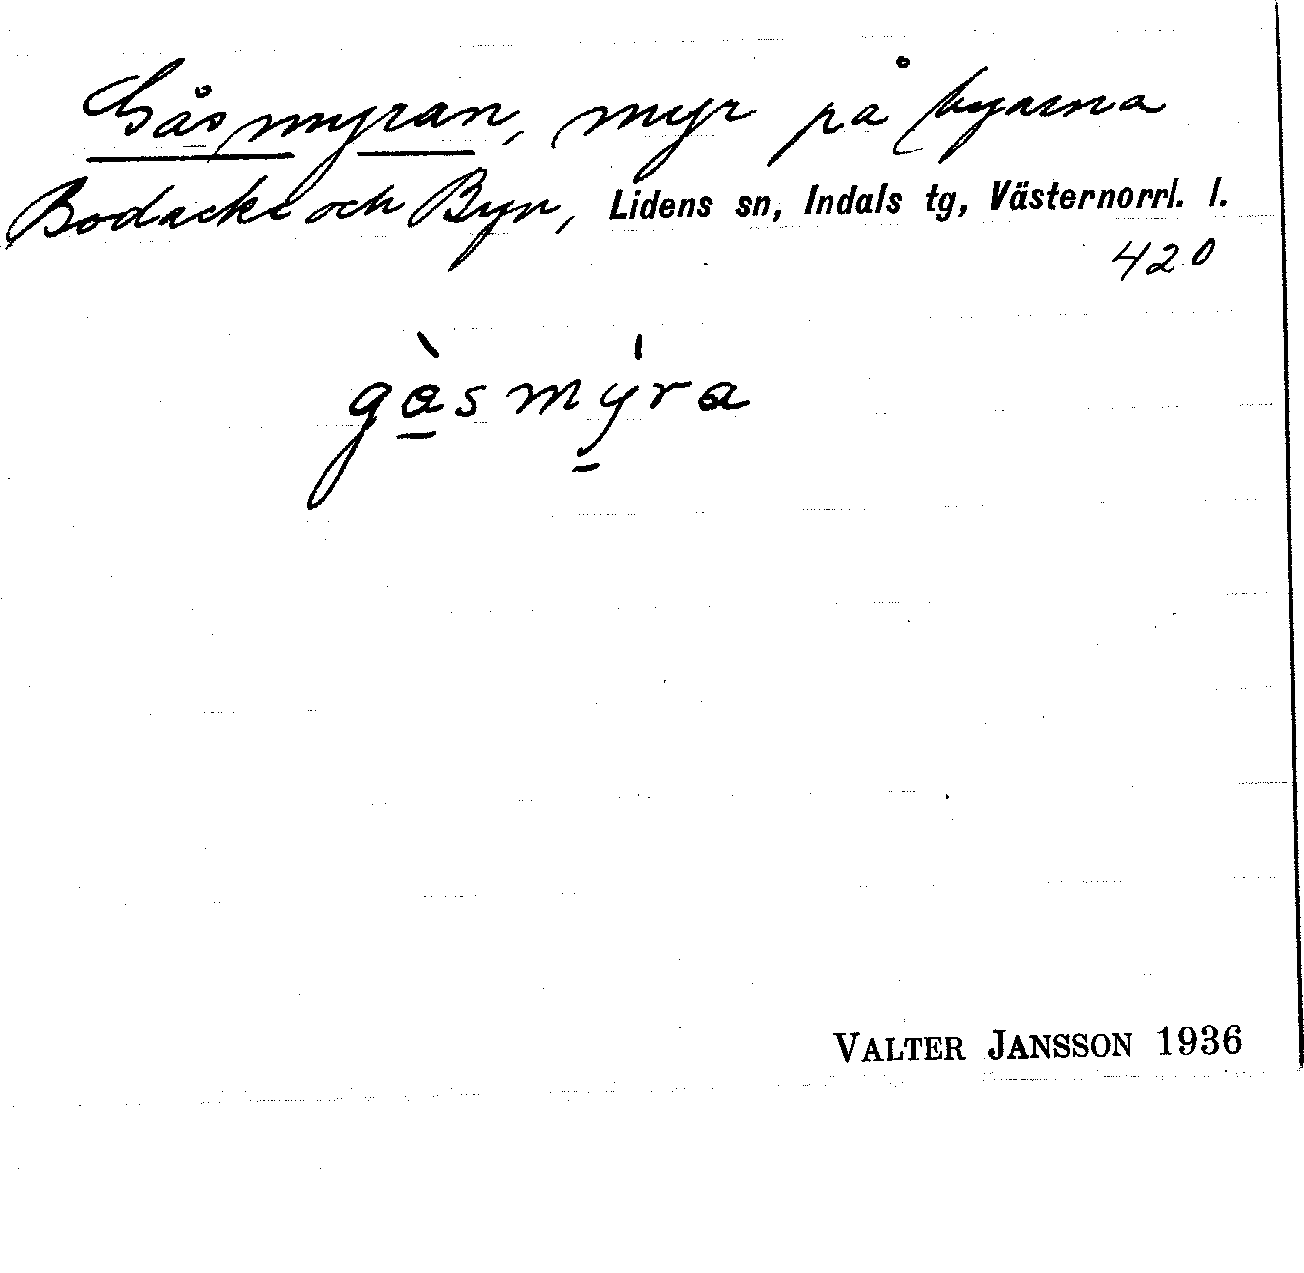 Gåsmyran, myr på byarna
Bodacke och Byn, Lidens sn, Indals tg, Västernorrl. l.
420
gàsmýra
VALTER JANSSON 1936